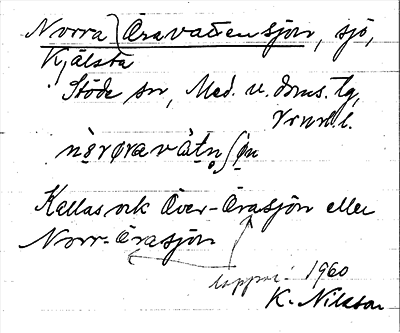 Norra) Öravattensjön, sjö,
Kjälsta
Stöde sn, Med. v. doms. tg,
nørøravàtn̥ʃøn
Kallas ock Över-Örasjön eller
Norr-Örasjön
uppm. 1960
K. Nilsson